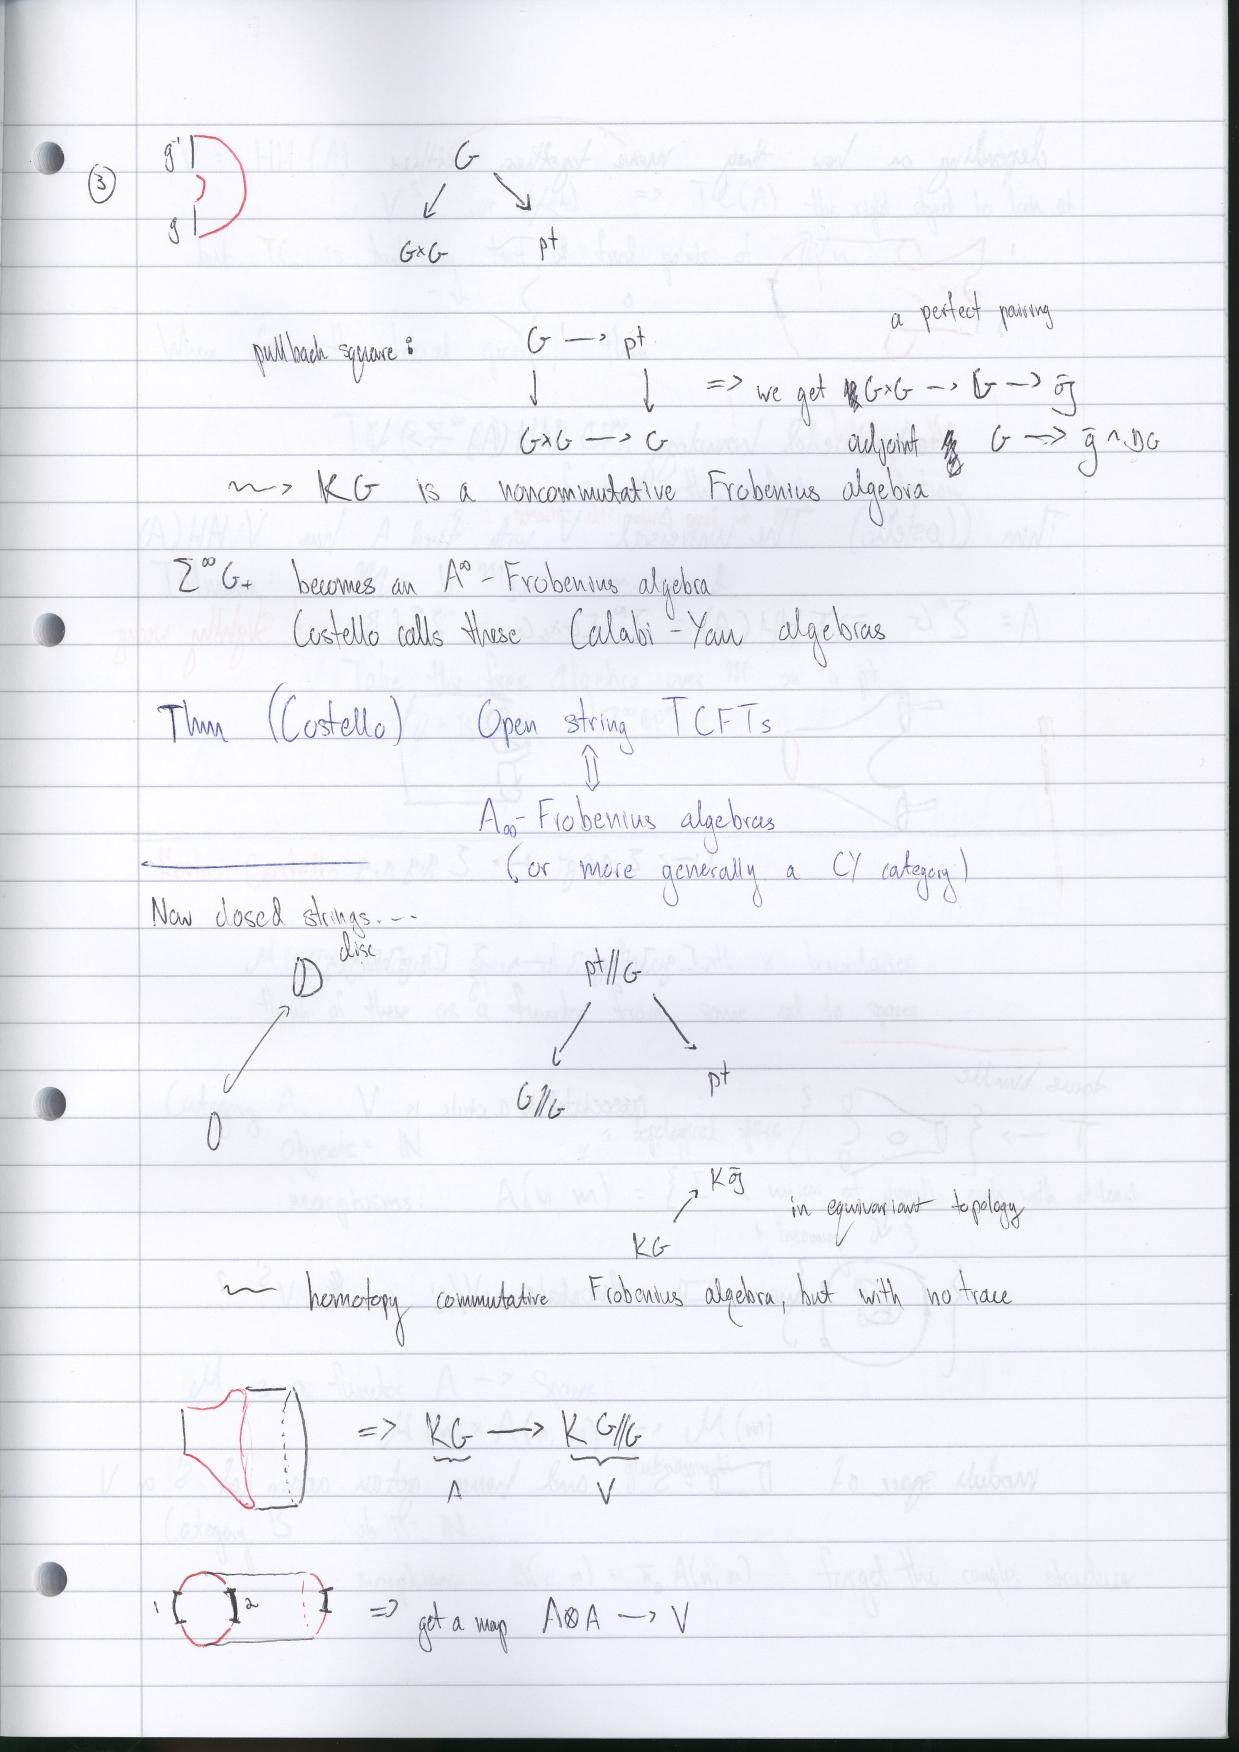 ③ g⁻¹ G
g G×G pt
a perfect pairing
pullback square: G → pt
=> we get G×G → G → ḡ
G×G → G adjoint G → ḡ ∧ DG
~> KG is a noncommutative Frobenius algebra
Σ^∞ G₊ becomes an A^∞-Frobenius algebra
Costello calls these Calabi-Yau algebras
Thm (Costello) Open string TCFTs
⇕
A∞-Frobenius algebras
(or more generally a CY category)
Now closed strings....
disc
pt//G
G//G pt
Kḡ
in equivariant topology
KG
~ homotopy commutative Frobenius algebra, but with no trace
=> KG → K G//G
A V
1 2 => get a map A⊗A → V